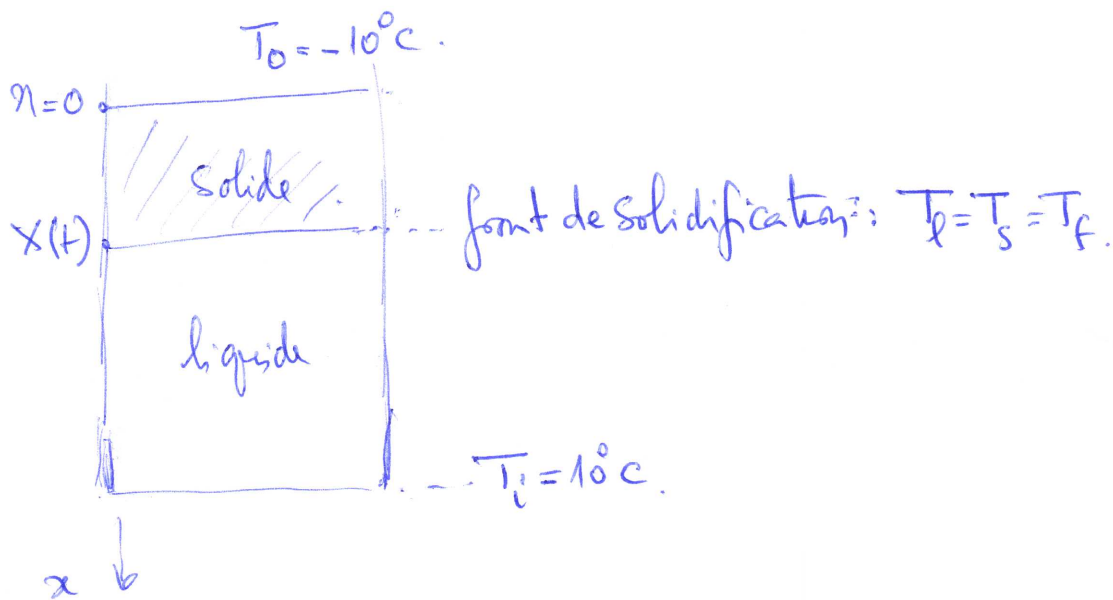 T₀ = -10°C.
x=0
solide
X(t)
front de solidification: Tl = Ts = Tf.
liquide
Ti = 10°C.
x